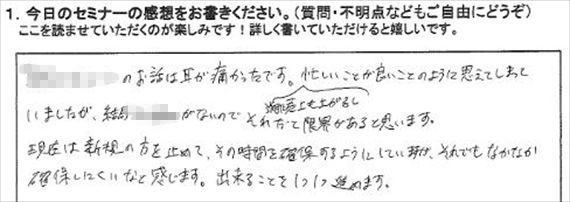 1. 今日のセミナーの感想をお書きください。(質問・不明点などもご自由にどうぞ)
ここを読ませていただくのが楽しみです！詳しく書いていただけると嬉しいです。
のお話は耳が痛かったです。忙しいことが良いことのように思えてしまって
いましたが、結局 がないので 上も上がるし それだって限界があると思います。
現在は新規の方を止めて、その時間を確保するようにしていますが、それでもなかなか
確保しにくいなと感じます。出来ることを1つ1つ進めます。